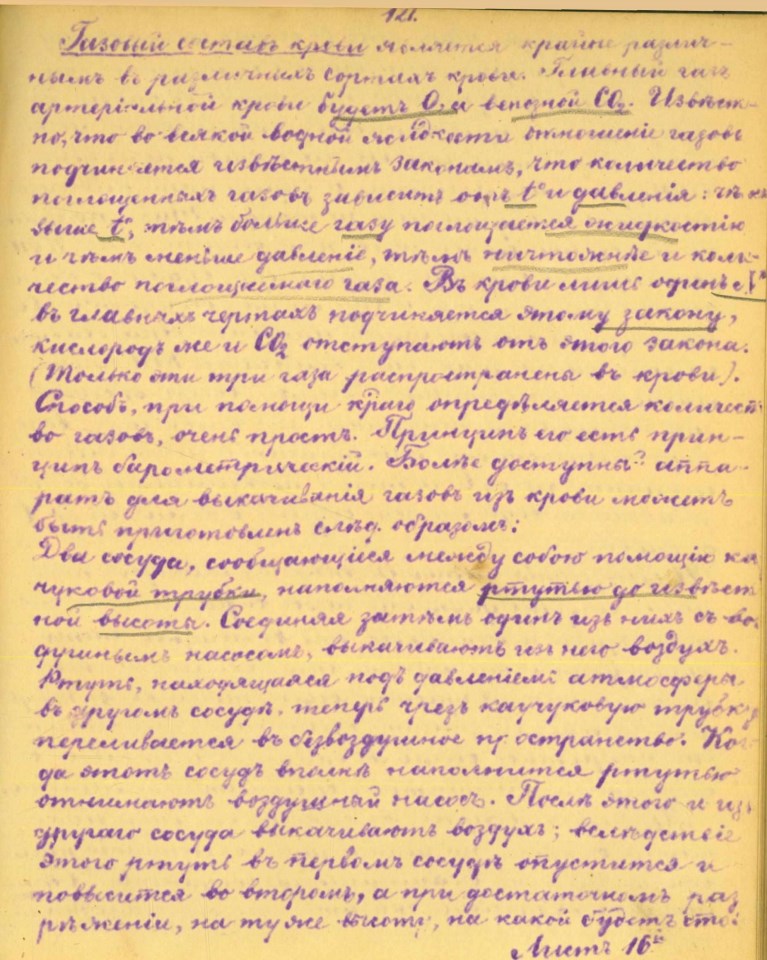 121.
Газовый составъ крови является крайне различ-
нымъ въ различныхъ сортахъ крови. Главный газъ
артеріальной крови будетъ O, а венозной CO2. Извѣст-
но, что во всякой водной жидкости отношеніе газовъ
подчиняется извѣстнымъ законамъ, что количество
поглощенныхъ газовъ зависитъ отъ t° и давленія: чѣмъ
выше t°, тѣмъ больше газу поглощается жидкостію
и чѣмъ меньше давленіе, тѣмъ ничтожнѣе и коли-
чество поглощеннаго газа. Въ крови лишь одинъ N
въ главныхъ чертахъ подчиняется этому закону,
кислородъ же и CO2 отступаютъ отъ этого закона.
(Только эти три газа распространены въ крови).
Способъ, при помощи краго опредѣляется количест-
во газовъ, очень простъ. Принципъ его есть прин-
ципъ барометрическій. Болѣе доступный аппа-
ратъ для выкачиванія газовъ изъ крови можетъ
быть приготовленъ слѣд. образомъ:
Два сосуда, сообщающіеся между собою помощію ка
чуковой трубки, наполняются ртутью до извѣст
ной высоты. Соединяя затѣмъ одинъ изъ нихъ съ во
душнымъ насосомъ, выкачиваютъ изъ него воздухъ.
Ртуть, находящаяся подъ давленіемъ атмосферы
въ другомъ сосудѣ, теперь чрезъ каучуковую трубку
переливается въ безвоздушное пространство. Ког
да этотъ сосудъ вполнѣ наполнится ртутью
отнимаютъ воздушный насосъ. Послѣ этого и изъ
другаго сосуда выкачиваютъ воздухъ; вслѣдствіе
этого ртуть въ первомъ сосудѣ опустится и
повысится во второмъ, а при достаточномъ раз
рѣженіи, на туже высоту, на какой будетъ сто
Листъ 16й